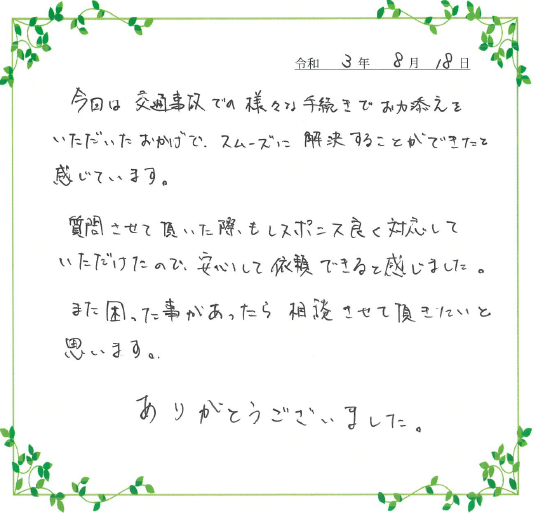 令和 3年 8月 18日
今回は 交通事故での様々な手続きでお力添えを
いただいたおかげで、スムーズに解決することができたと
感じています。
質問させて頂いた際もレスポンス良く対応して
いただけたので、安心して依頼できると感じました。
また困った事があったら相談させて頂きたいと
思います。
ありがとうございました。